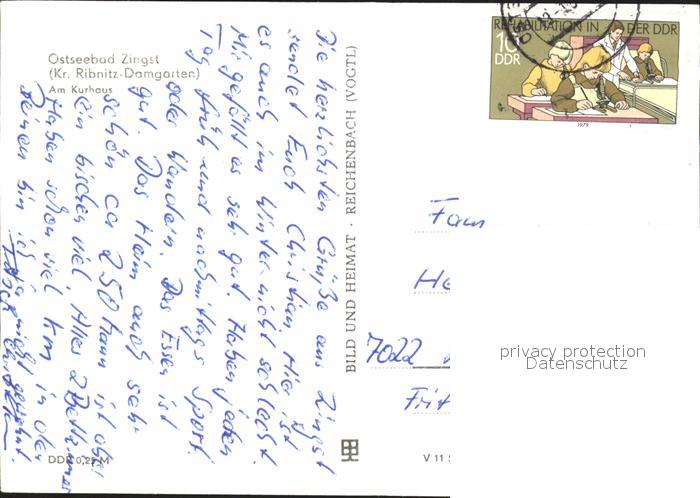 Ostseebad Zingst
(Kr. Ribnitz-Damgarten)
Am Kurhaus
Die herzlichsten Grüße aus Zingst
sendet Euch Christian. Hier ist
es auch im Winter nicht schlecht.
Mir gefällt es sehr gut. Haben jeden
Tag früh und nachmittags Sport
oder Wandern. Das Essen ist
gut. Das Heim auch sehr
schön ca 250 Mann ist aber
ein bischen viel. Alles 2 Bettzimmer
Haben schon viel km in den
Beinen bin ich ja nicht gewohnt.
DDR 0,25 M
BILD UND HEIMAT · REICHENBACH (VOGTL)
V 11
REHABILITATION IN DER DDR
10
DDR
1979
Fam
He
7022
Frit
privacy protection
Datenschutz